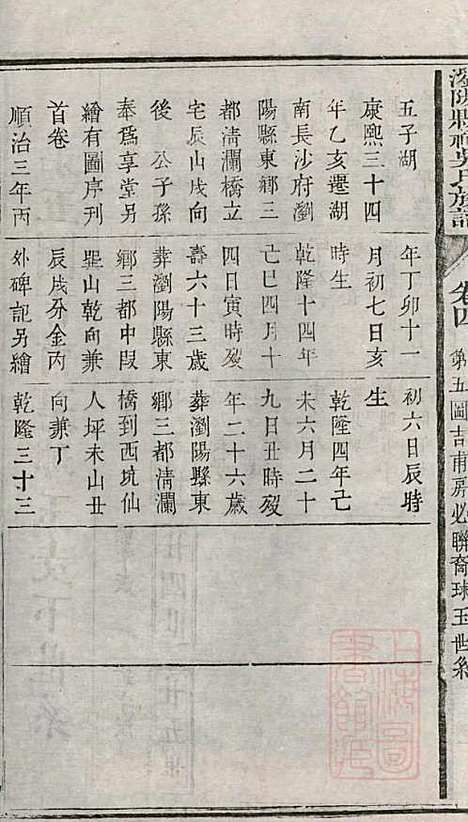 氏族譜
卷四
第五圖吉甫房必聯裔球玉世系
五子湖
康熙三十四
年乙亥遷湖
南長沙府瀏
陽縣東鄉三
都清瀾橋立
宅辰山戌向
後 公子孫
奉爲享堂另
繪有圖序刊
首卷
順治三年丙
年丁卯十一
月初七日亥
時生
乾隆十四年
己巳四月十
四日寅時歿
壽六十三歲
葬瀏陽縣東
鄉三都中段
巽山乾向兼
辰戌分金丙
外碑記另繪
初六日辰時
生
乾隆四年己
未六月二十
九日丑時歿
年二十六歲
葬瀏陽縣東
鄉三都清瀾
橋到西坑仙
人坪未山丑
向兼丁
乾隆三十三
上海圖書館藏